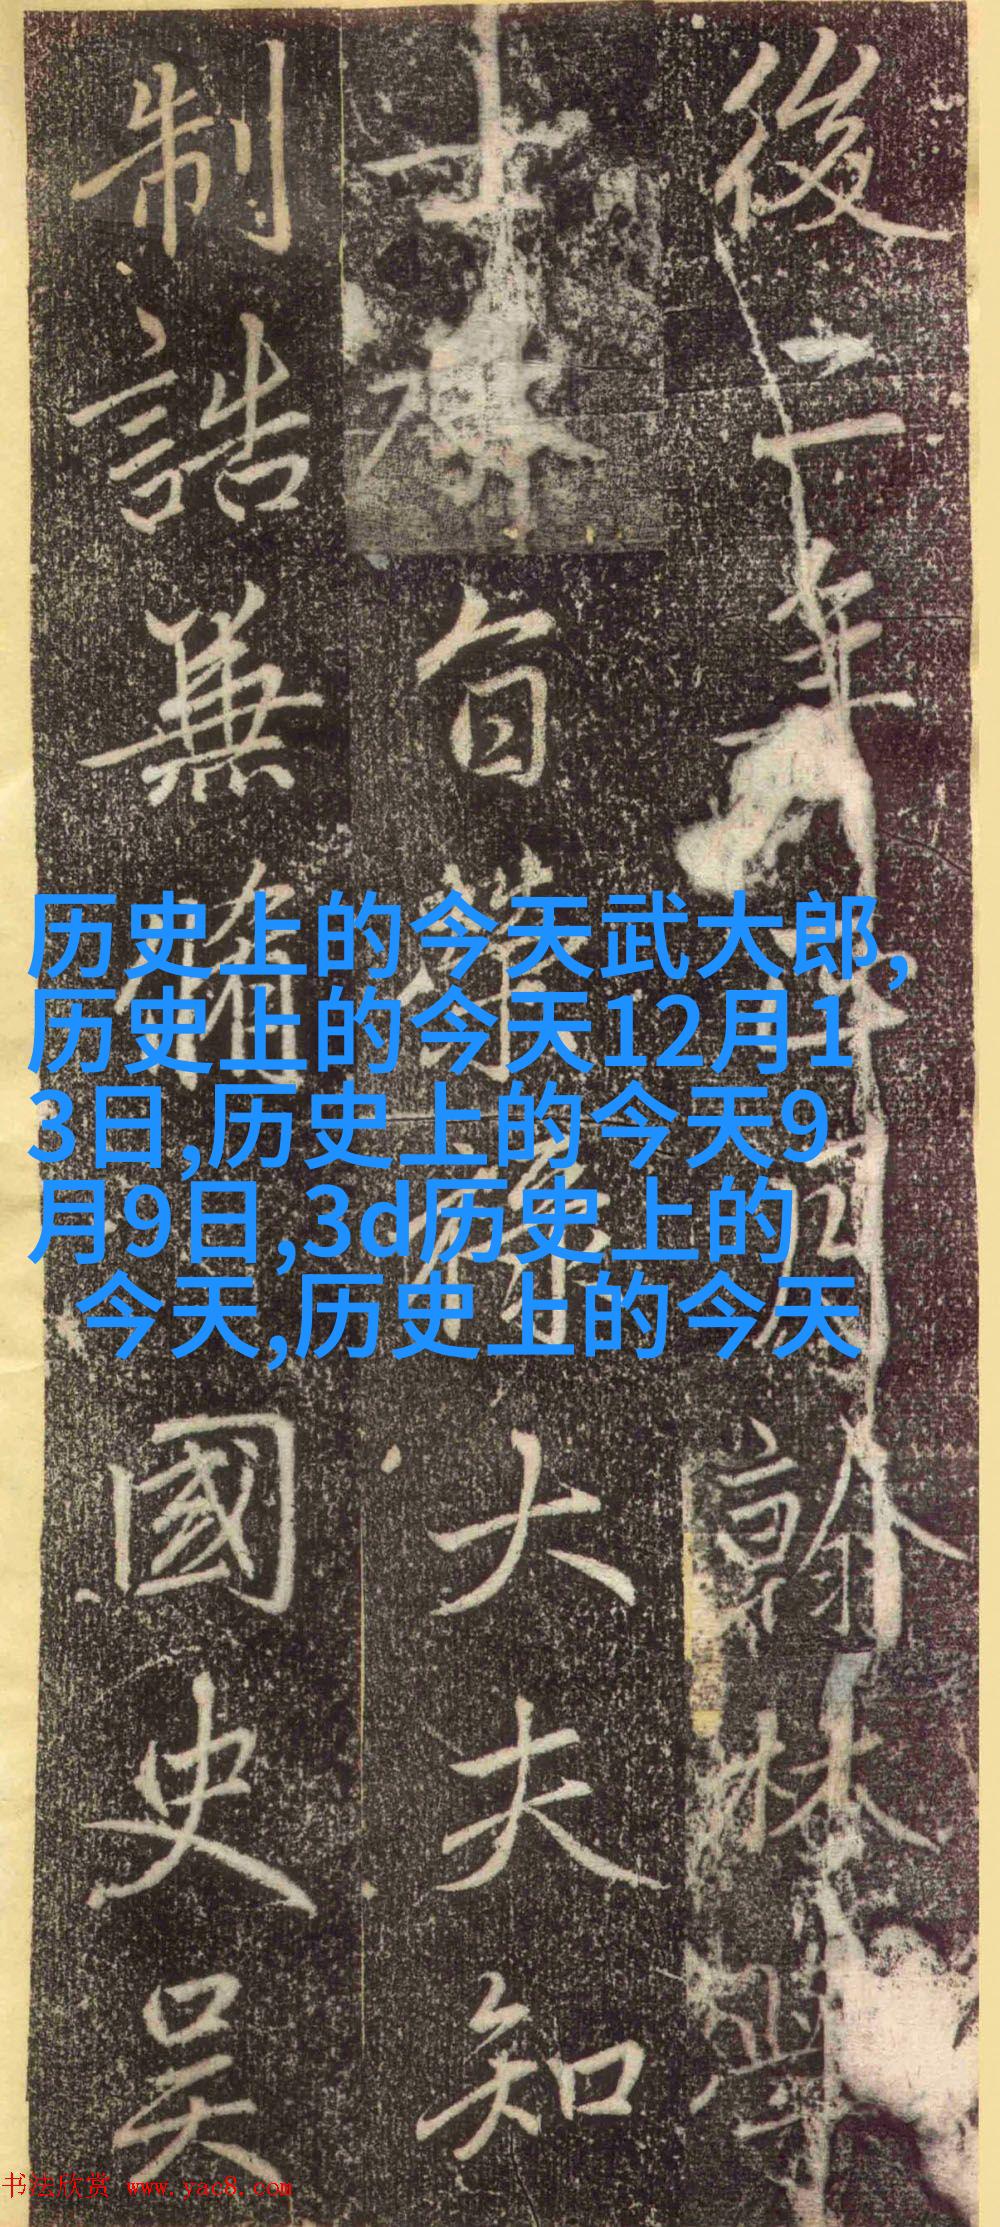 後二年
月翰林學
士
旨榮祿大夫知
制誥兼
國史吳
历史上的今天武大郎,
历史上的今天12月1
3日,历史上的今天9
月9日,3d历史上的
今天,历史上的今天
书法欣赏 www.yac8.com